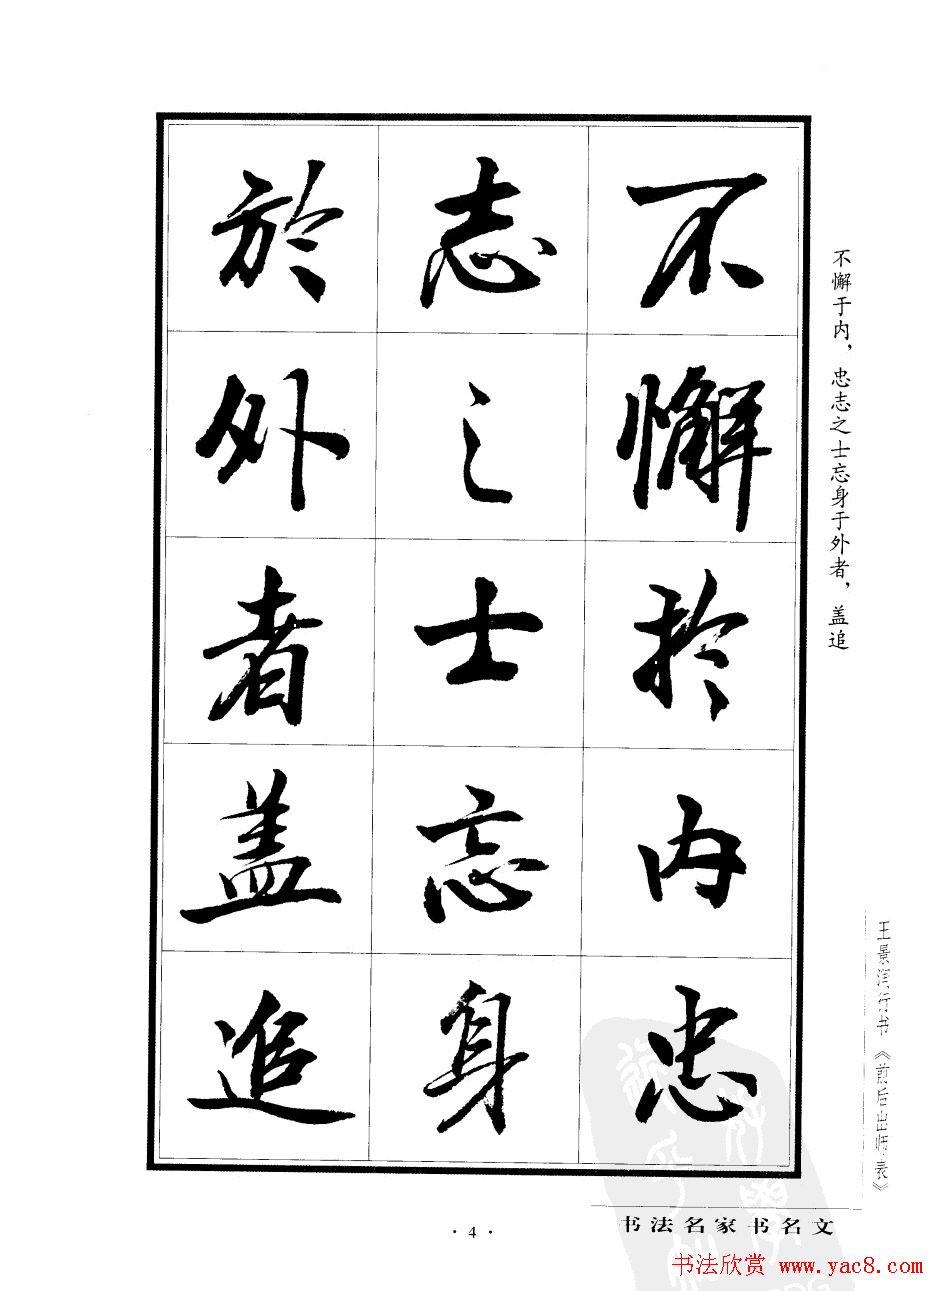 不懈於内忠
志之士忘身
於外者盖追
不懈于内，忠志之士忘身于外者，盖追
王景芬行书《前后出师表》
书法名家书名文
·4·
书法欣赏 www.yac8.com